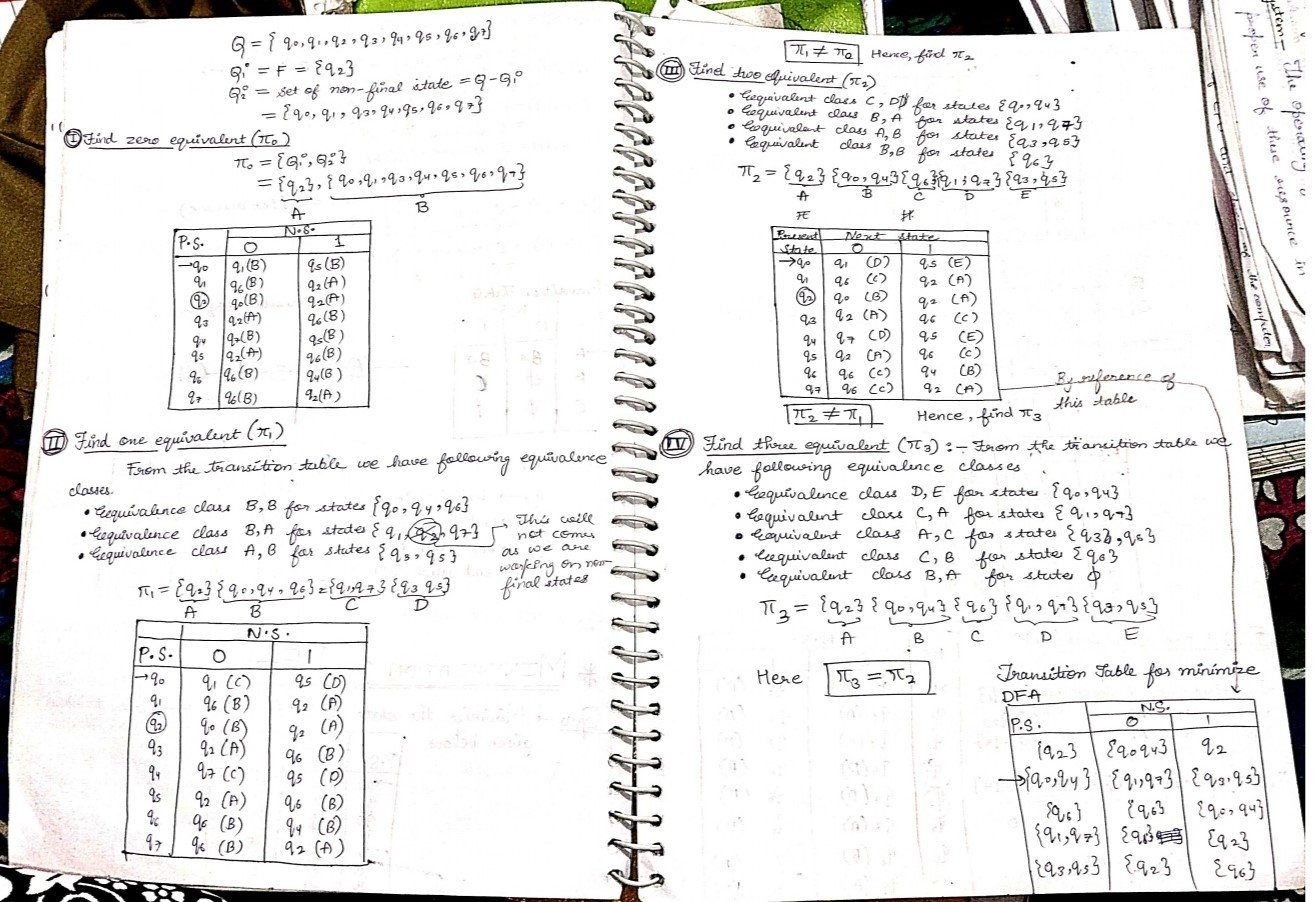 Q = { q0, q1, q2, q3, q4, q5, q6, q7}
Q1° = F = {q2}
Q2° = set of non-final state = Q-Q1°
= {q0, q1, q3, q4, q5, q6, q7}
I Find zero equivalent (π0)
π0 = {Q1°, Q2°}
= {q2}, { q0, q1, q3, q4, q5, q6, q7}
A B
P.S. N.S.
0 1
→q0 q1(B) q5(B)
q1 q6(B) q2(A)
q2 q0(B) q2(A)
q3 q2(A) q6(B)
q4 q7(B) q5(B)
q5 q2(A) q6(B)
q6 q6(B) q4(B)
q7 q6(B) q2(A)
II Find one equivalent (π1)
From the transition table we have following equivalence
classes.
• Eequivalence class B, B for states {q0, q4, q6}
• Eequivalence class B, A for states { q1, q2, q7}
• Eequivalence class A, B for states { q3, q5}
→ This will
not comes
as we are
working on non
final states
π1 = {q2} { q0, q4, q6} {q1, q7} {q3 q5}
A B C D
N.S.
P.S. 0 1
→q0 q1 (C) q5 (D)
q1 q6 (B) q2 (A)
q2 q0 (B) q2 (A)
q3 q2 (A) q6 (B)
q4 q7 (C) q5 (D)
q5 q2 (A) q6 (B)
q6 q6 (B) q4 (B)
q7 q6 (B) q2 (A)
π1 ≠ π0 Hence, find π2
III Find two equivalent (π2)
• Eequivalent class C, D for states {q0, q4}
• Eequivalent class B, A for states {q1, q7}
• Eequivalent class A, B for states {q3, q5}
• Eequivalent class B, B for states {q6}
π2 = {q2} {q0, q4} {q6} {q1, q7} {q3, q5}
A B C D E
Present Next state
State 0 1
→q0 q1 (D) q5 (E)
q1 q6 (C) q2 (A)
q2 q0 (B) q2 (A)
q3 q2 (A) q6 (C)
q4 q7 (D) q5 (E)
q5 q2 (A) q6 (C)
q6 q6 (C) q4 (B)
q7 q6 (C) q2 (A)
By reference of
this table
π2 ≠ π1 Hence, find π3
IV Find three equivalent (π3) :- From the transition table we
have following equivalence classes
• Eequivalence class D, E for states {q0, q4}
• Eequivalent class C, A for states { q1, q7}
• Eequivalent class A, C for states { q3, q5}
• Eequivalent class C, B for states { q6}
• Eequivalent class B, A for states ϕ
π3 = {q2} { q0, q4} {q6} {q1, q7} {q3, q5}
A B C D E
Here π3 = π2
Transition Table for minimize
DFA
P.S. N.S.
0 1
{q2} {q0 q4} q2
→{q0, q4} {q1, q7} {q3, q5}
{q6} {q6} {q0, q4}
{q1, q7} {q6} {q2}
{q3, q5} {q2} {q6}
The operating
proper use of these resource in
the computer